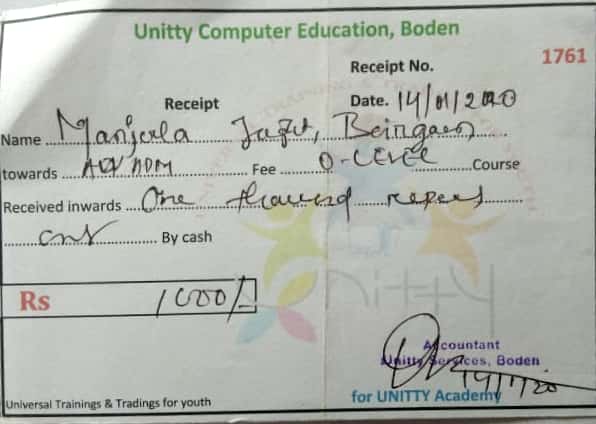 Unitty Computer Education, Boden
1761
Receipt No.
Receipt
Date. 14/01/2020
Name Manjula Jagat, Beingaon
towards Adv ADM Fee O-LEVEL Course
Received inwards One thousand rupees
only By cash
Rs 1000/-
unitty
Accountant
Unitty Services, Boden
14/1/20
Universal Trainings & Tradings for youth
for UNITTY Academy